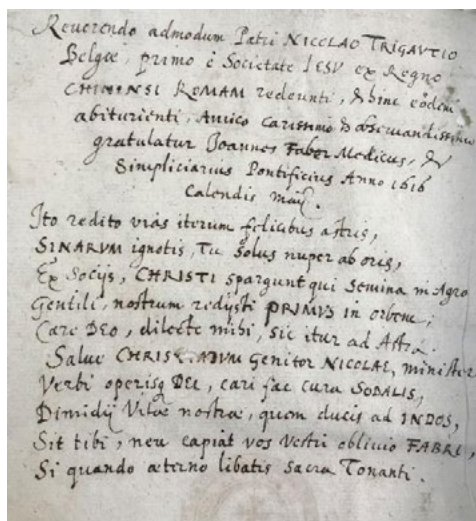 Reverendo admodum Patri NICOLAO TRIGAVTIO
Belgæ, primo è Societate IESV ex Regno
CHINENSI ROMAM redeunti, & hinc eòdem
abiturienti, Amico carissimo & observandissimo
gratulatur Joannes Faber Medicus, &
Simpliciarius Pontificius Anno 1616
Calendis Maij.
Ito redito vias iterum felicibus astris,
SINARVM ignotis, Tu solus nuper ab oris,
Ex Socijs, CHRISTI spargunt qui Semina in Agro
Gentili, nostrum redijsti PRIMVS in orbem;
Care DEO, dilecte mihi, sic itur ad Astra.
Salve Genitor NICOLAE, minister
Verbi operisq DEI, cari fac cura SODALIS,
Dimidij Vitæ nostræ, quem ducis ad INDOS,
Sit tibi, neu capiat vos Vestri oblivio FABRI,
Si quando æterno libatis Sacra Tonanti.